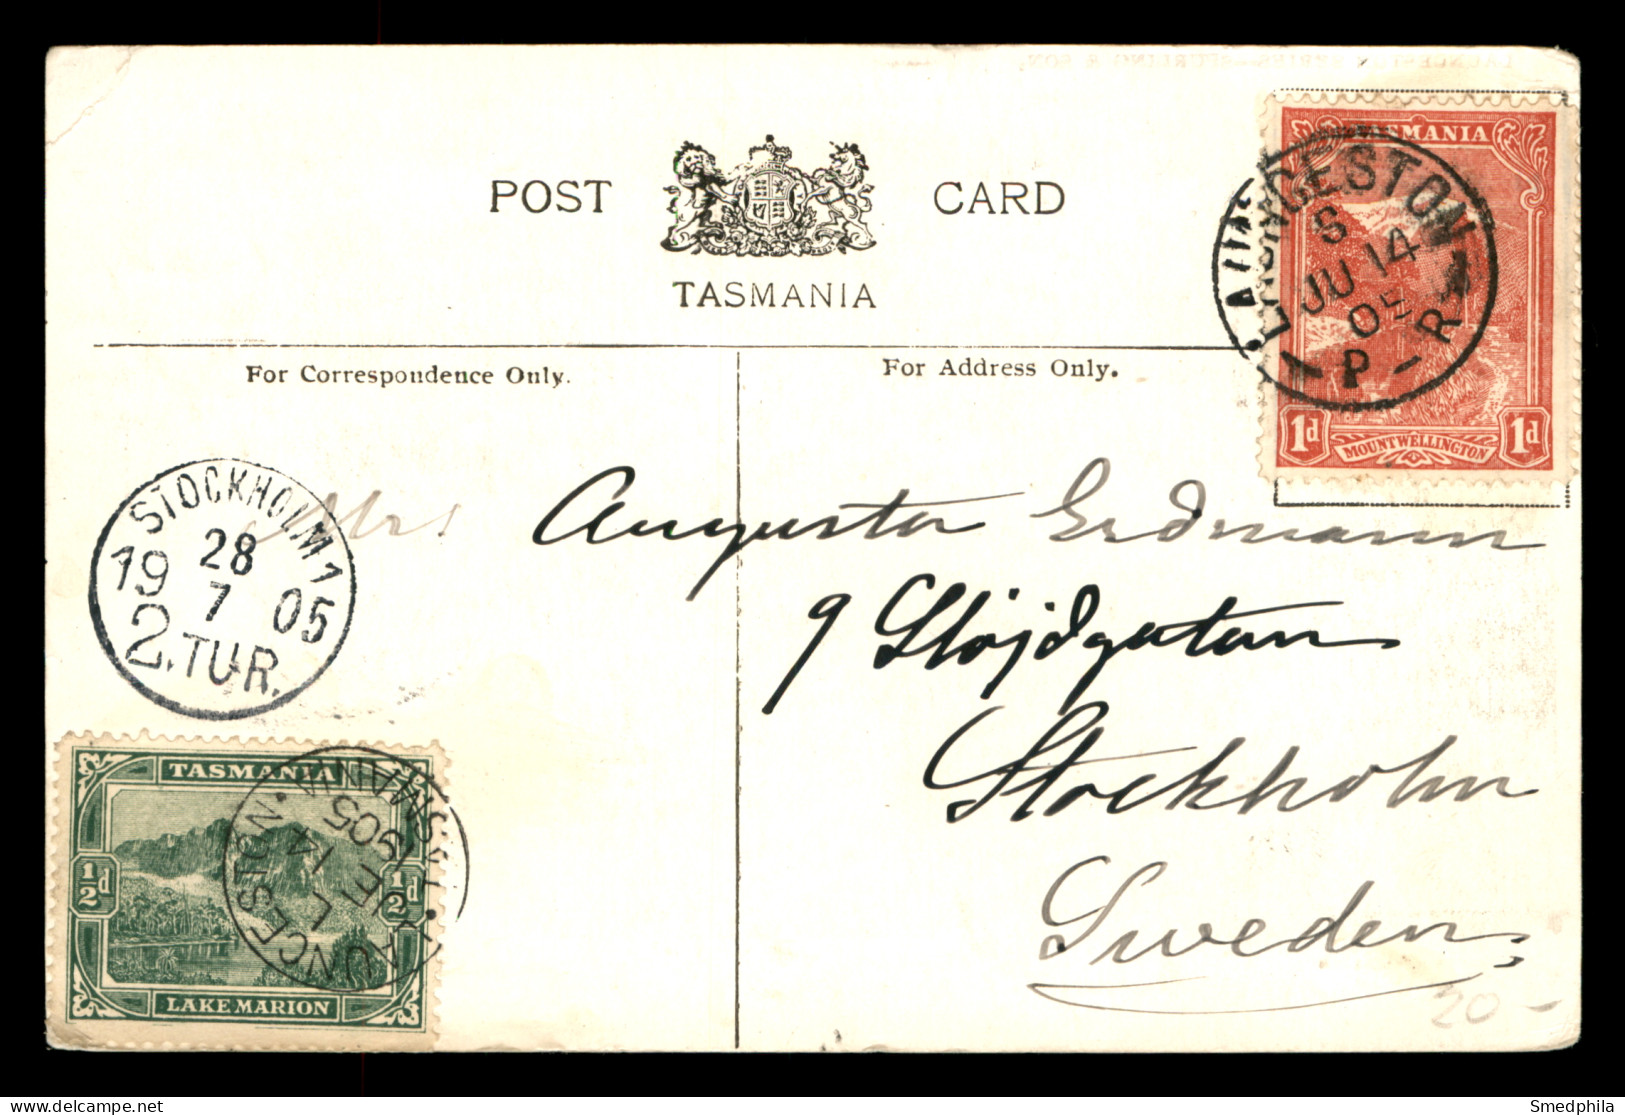 POST CARD
TASMANIA
For Correspondence Only.
For Address Only.
TASMANIA
LAUNCESTON
S
JU 14
05
P R
1d 1d
MOUNT WELLINGTON
STOCKHOLM 1
28
19 7 05
2.TUR.
Mrs Augusta Erdmann
9 Slöjdgatan
Stockholm
Sweden
TASMANIA
1/2d 1/2d
LAKE MARION
LAUNCESTON · TASMANIA
L
14
1905
20 -
Smedphila